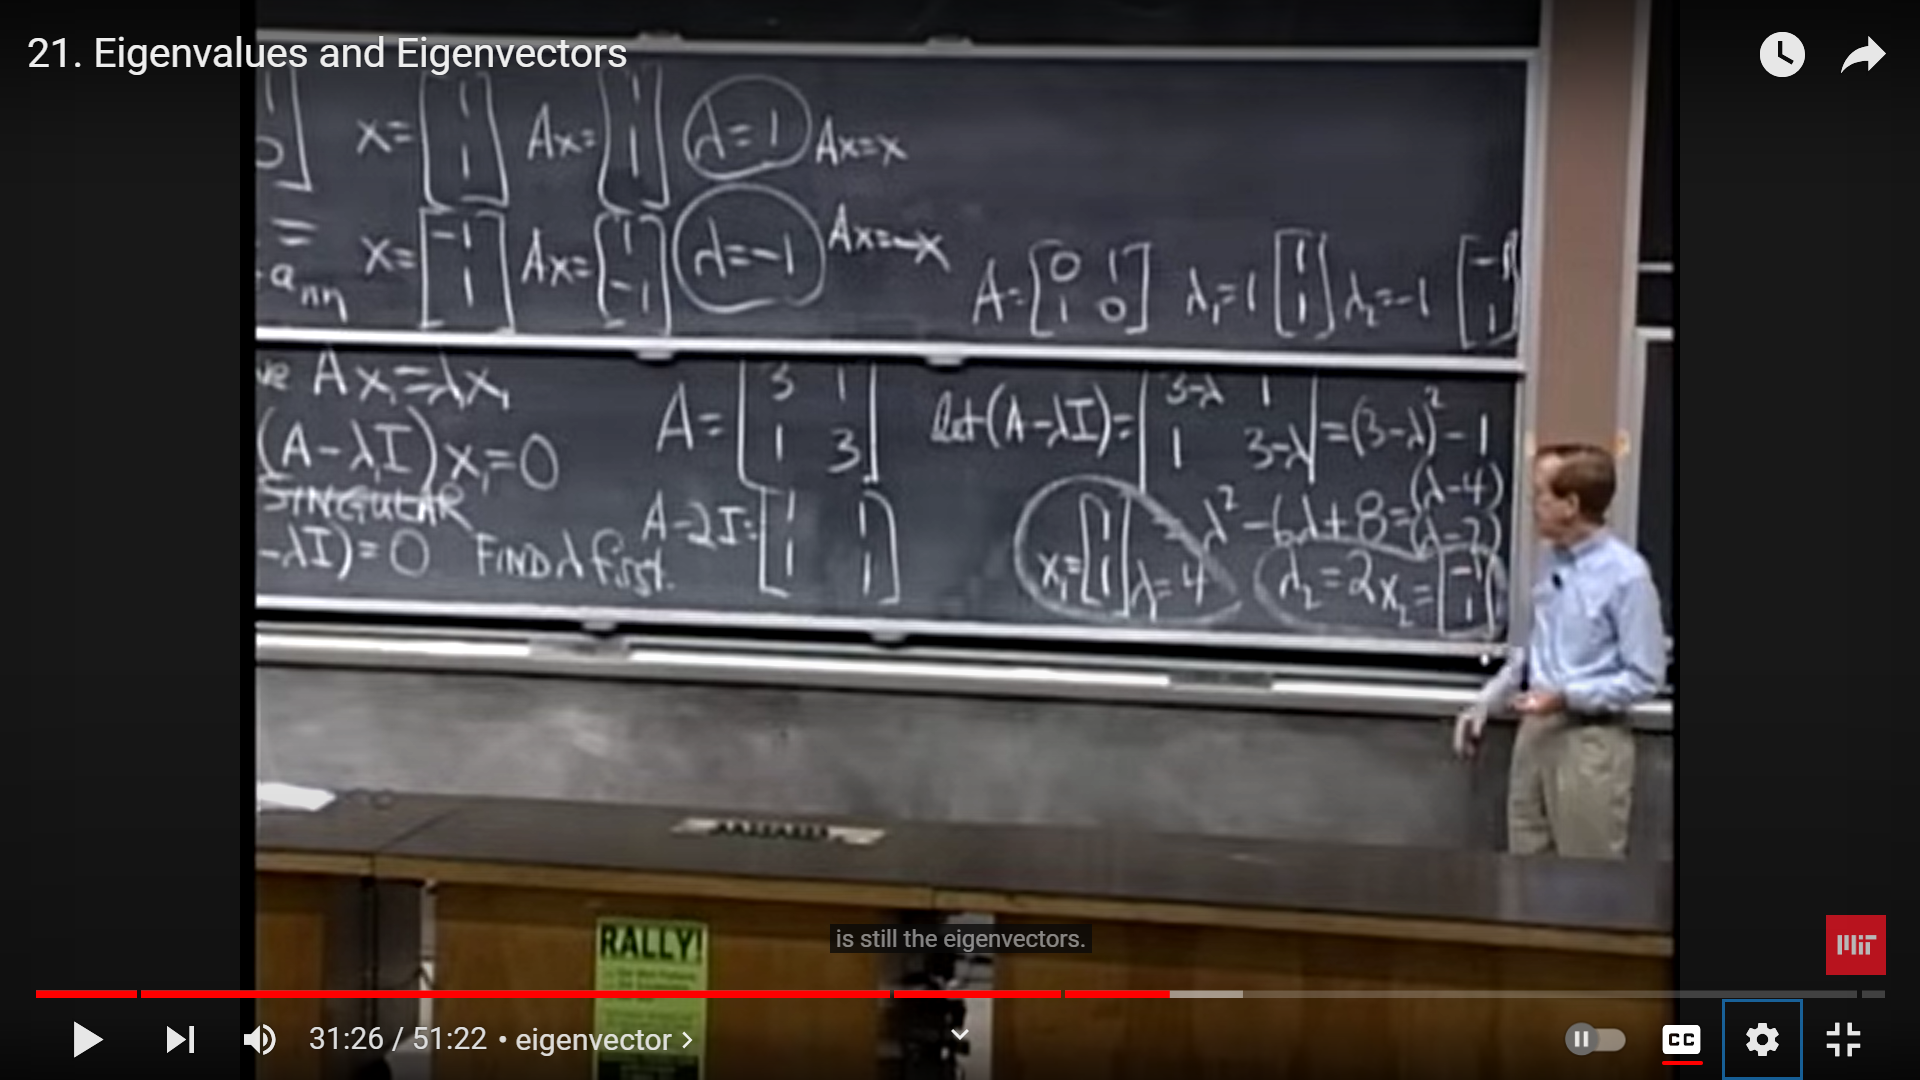 21. Eigenvalues and Eigenvectors
1
0
x= [1 1] Ax= [1 1] λ=1 Ax=x
x= [-1 1] Ax= [1 -1] λ=-1 Ax=-x
=
a_nn
A= [0 1 1 0] λ₁=1 [1 1] λ₂=-1 [-1 1]
ve Ax₁=λx₁
(A-λ₁I)x₁=0
SINGULAR
-λI)=0 FIND λ first.
A= [3 1 1 3]
A-2I= [1 1 1 1]
det(A-λI)= |3-λ 1 1 3-λ| =(3-λ)²-1
= λ²-6λ+8=(λ-4)(λ-2)
x₁= [1 1] λ=4 λ₂=2 x₂= [-1 1]
RALLY!
is still the eigenvectors.
MIT
31:26 / 51:22 • eigenvector >
CC